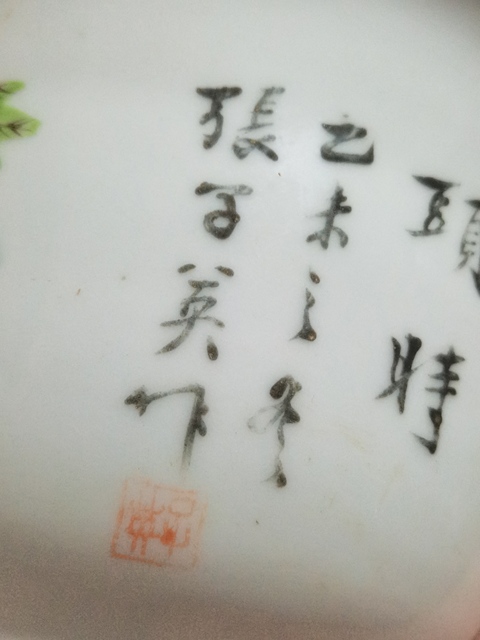 頭時
己未之冬
張子英作